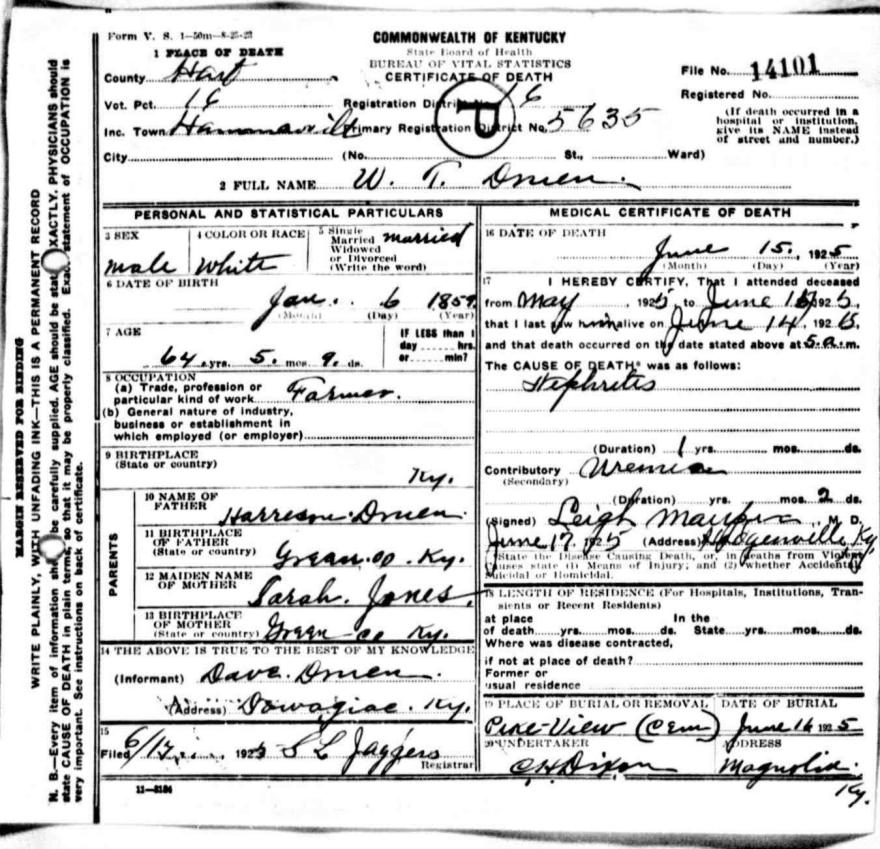 Form V. S. 1—50m—8-25-23
COMMONWEALTH OF KENTUCKY
State Board of Health
BUREAU OF VITAL STATISTICS
CERTIFICATE OF DEATH
1 PLACE OF DEATH
County Hart
File No. 14101
Vot. Pct. 16
Registration District No. 16
Registered No.
P
Inc. Town Hammonville
Primary Registration District No. 5635
(If death occurred in a hospital or institution, give its NAME instead of street and number.)
City (No. St., Ward)
2 FULL NAME W. T. Druen.
PERSONAL AND STATISTICAL PARTICULARS
3 SEX
male
4 COLOR OR RACE
White
5 Single Married Widowed or Divorced (Write the word)
married
6 DATE OF BIRTH
Jan. 6 1859
(Month) (Day) (Year)
7 AGE
64 yrs. 5. mos. 9. ds.
IF LESS than 1 day hrs. or min?
8 OCCUPATION
(a) Trade, profession or particular kind of work Farmer.
(b) General nature of industry, business or establishment in which employed (or employer)
9 BIRTHPLACE
(State or country)
Ky.
PARENTS
10 NAME OF FATHER
Harreson Druen.
11 BIRTHPLACE OF FATHER
(State or country) Green co Ky.
12 MAIDEN NAME OF MOTHER
Sarah. Jones.
13 BIRTHPLACE OF MOTHER
(State or country) Green co Ky.
14 THE ABOVE IS TRUE TO THE BEST OF MY KNOWLEDGE
(Informant) Dave Druen.
(Address) Dowagiac. Ky.
15
Filed 6/17 1925 S L Jaggers
Registrar
11—3184
MEDICAL CERTIFICATE OF DEATH
16 DATE OF DEATH
June 15., 1925
(Month) (Day) (Year)
17 I HEREBY CERTIFY, That I attended deceased
from May, 1925 to June 15 1925,
that I last saw him alive on June 14, 1925,
and that death occurred on the date stated above at 5.a.m.
The CAUSE OF DEATH* was as follows:
Nephretis
(Duration) 1 yrs. mos. ds.
Contributory Uremia
(Secondary)
(Duration) yrs. mos. 2 ds.
(Signed) Leigh Maupin, M. D.
June 17. 1925 (Address) Hodgenville, Ky.
*State the Disease Causing Death, or, in deaths from Violent
Causes state (1) Means of Injury; and (2) whether Accidental,
Suicidal or Homicidal.
18 LENGTH OF RESIDENCE (For Hospitals, Institutions, Transients or Recent Residents)
at place of death yrs. mos. ds. In the State yrs. mos. ds.
Where was disease contracted,
if not at place of death?
Former or
usual residence
19 PLACE OF BURIAL OR REMOVAL
Pike-View (Cem)
DATE OF BURIAL
June 16 1925
20 UNDERTAKER
C H Dixon
ADDRESS
Magnolia. Ky.
MARGIN RESERVED FOR BINDING
WRITE PLAINLY, WITH UNFADING INK—THIS IS A PERMANENT RECORD
N. B.—Every item of information should be carefully supplied. AGE should be stated EXACTLY. PHYSICIANS should
state CAUSE OF DEATH in plain terms, so that it may be properly classified. Exact statement of OCCUPATION is
very important. See instructions on back of certificate.